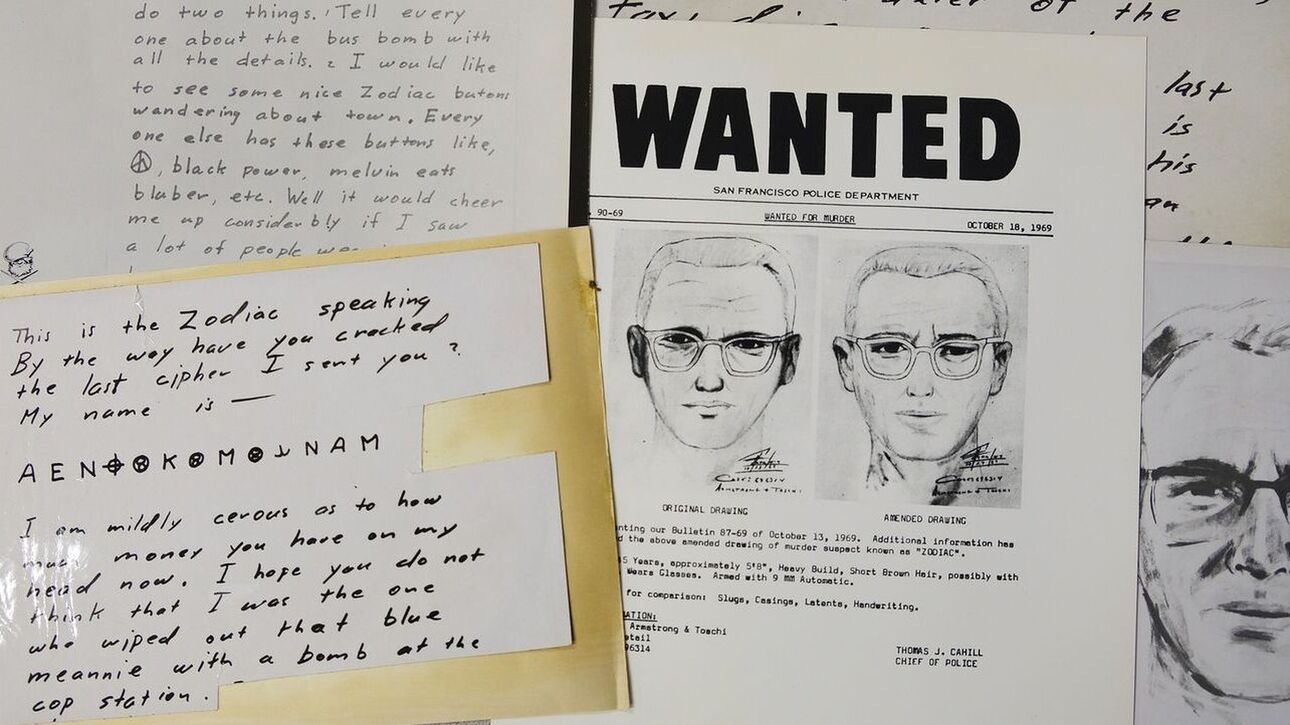 do two things. 1 Tell every
one about the bus bomb with
all the details. 2 I would like
to see some nice Zodiac butons
wandering about town. Every
one else has these buttons like,
, black power, melvin eats
bluber, etc. Well it would cheer
me up considerbly if I saw
a lot of people
This is the Zodiac speaking
By the way have you cracked
the last cipher I sent you?
My name is —
A E N ⌖ ⊗ K ⊗ M ⊗ N A M
I am mildly cerous as to how
much money you have on my
head now. I hope you do not
think that I was the one
who wiped out that blue
meannie with a bomb at the
cop station.
of the
last
is
his
WANTED
SAN FRANCISCO POLICE DEPARTMENT
90-69 WANTED FOR MURDER OCTOBER 18, 1969
ORIGINAL DRAWING AMENDED DRAWING
nting our Bulletin 87-69 of October 13, 1969. Additional information has
d the above amended drawing of murder suspect known as "ZODIAC".
5 Years, approximately 5'8", Heavy Build, Short Brown Hair, possibly with
Wears Glasses. Armed with 9 MM Automatic.
for comparison: Slugs, Casings, Latents, Handwriting.
ATION:
Armstrong & Toschi
etail
96314
THOMAS J. CAHILL
CHIEF OF POLICE